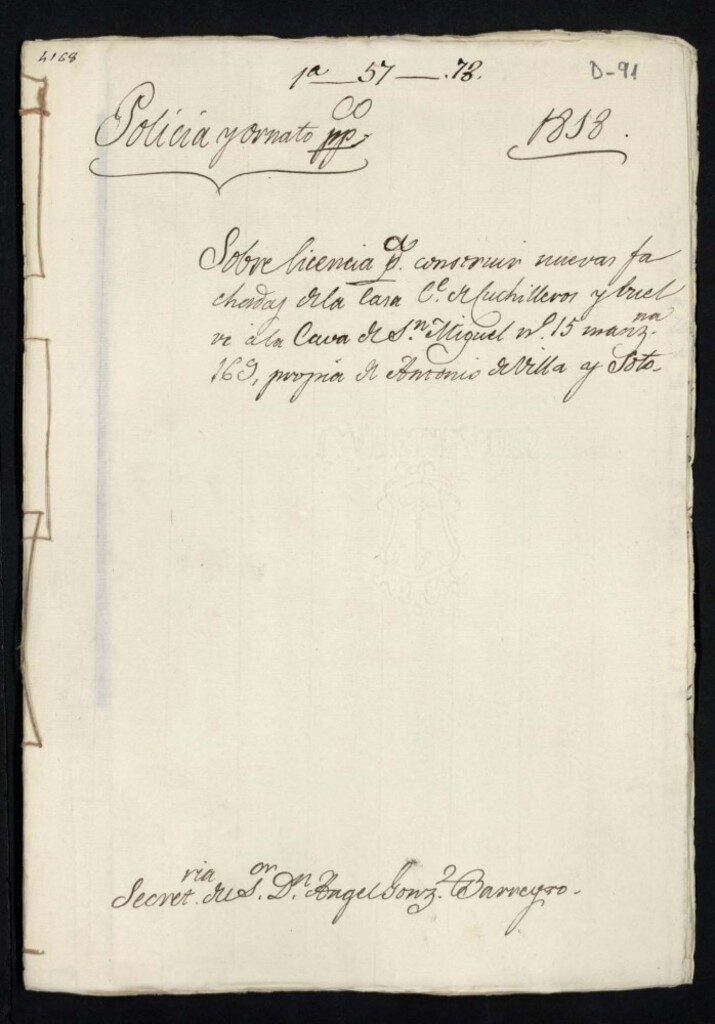 4168
1ª 57 - 78.
D-91
Policia y ornato ppCO
1818.
Sobre licencia pª. construir nuevas fa
chadas de la Casa Ce. de Cuchilleros y buel
ve á la Cava de Sn. Miguel nº. 15 manzna.
169, propia de Antonio de Villa y Soto.
Secretria. del Sor. Dn. Angel Gonzz. Barreyro.